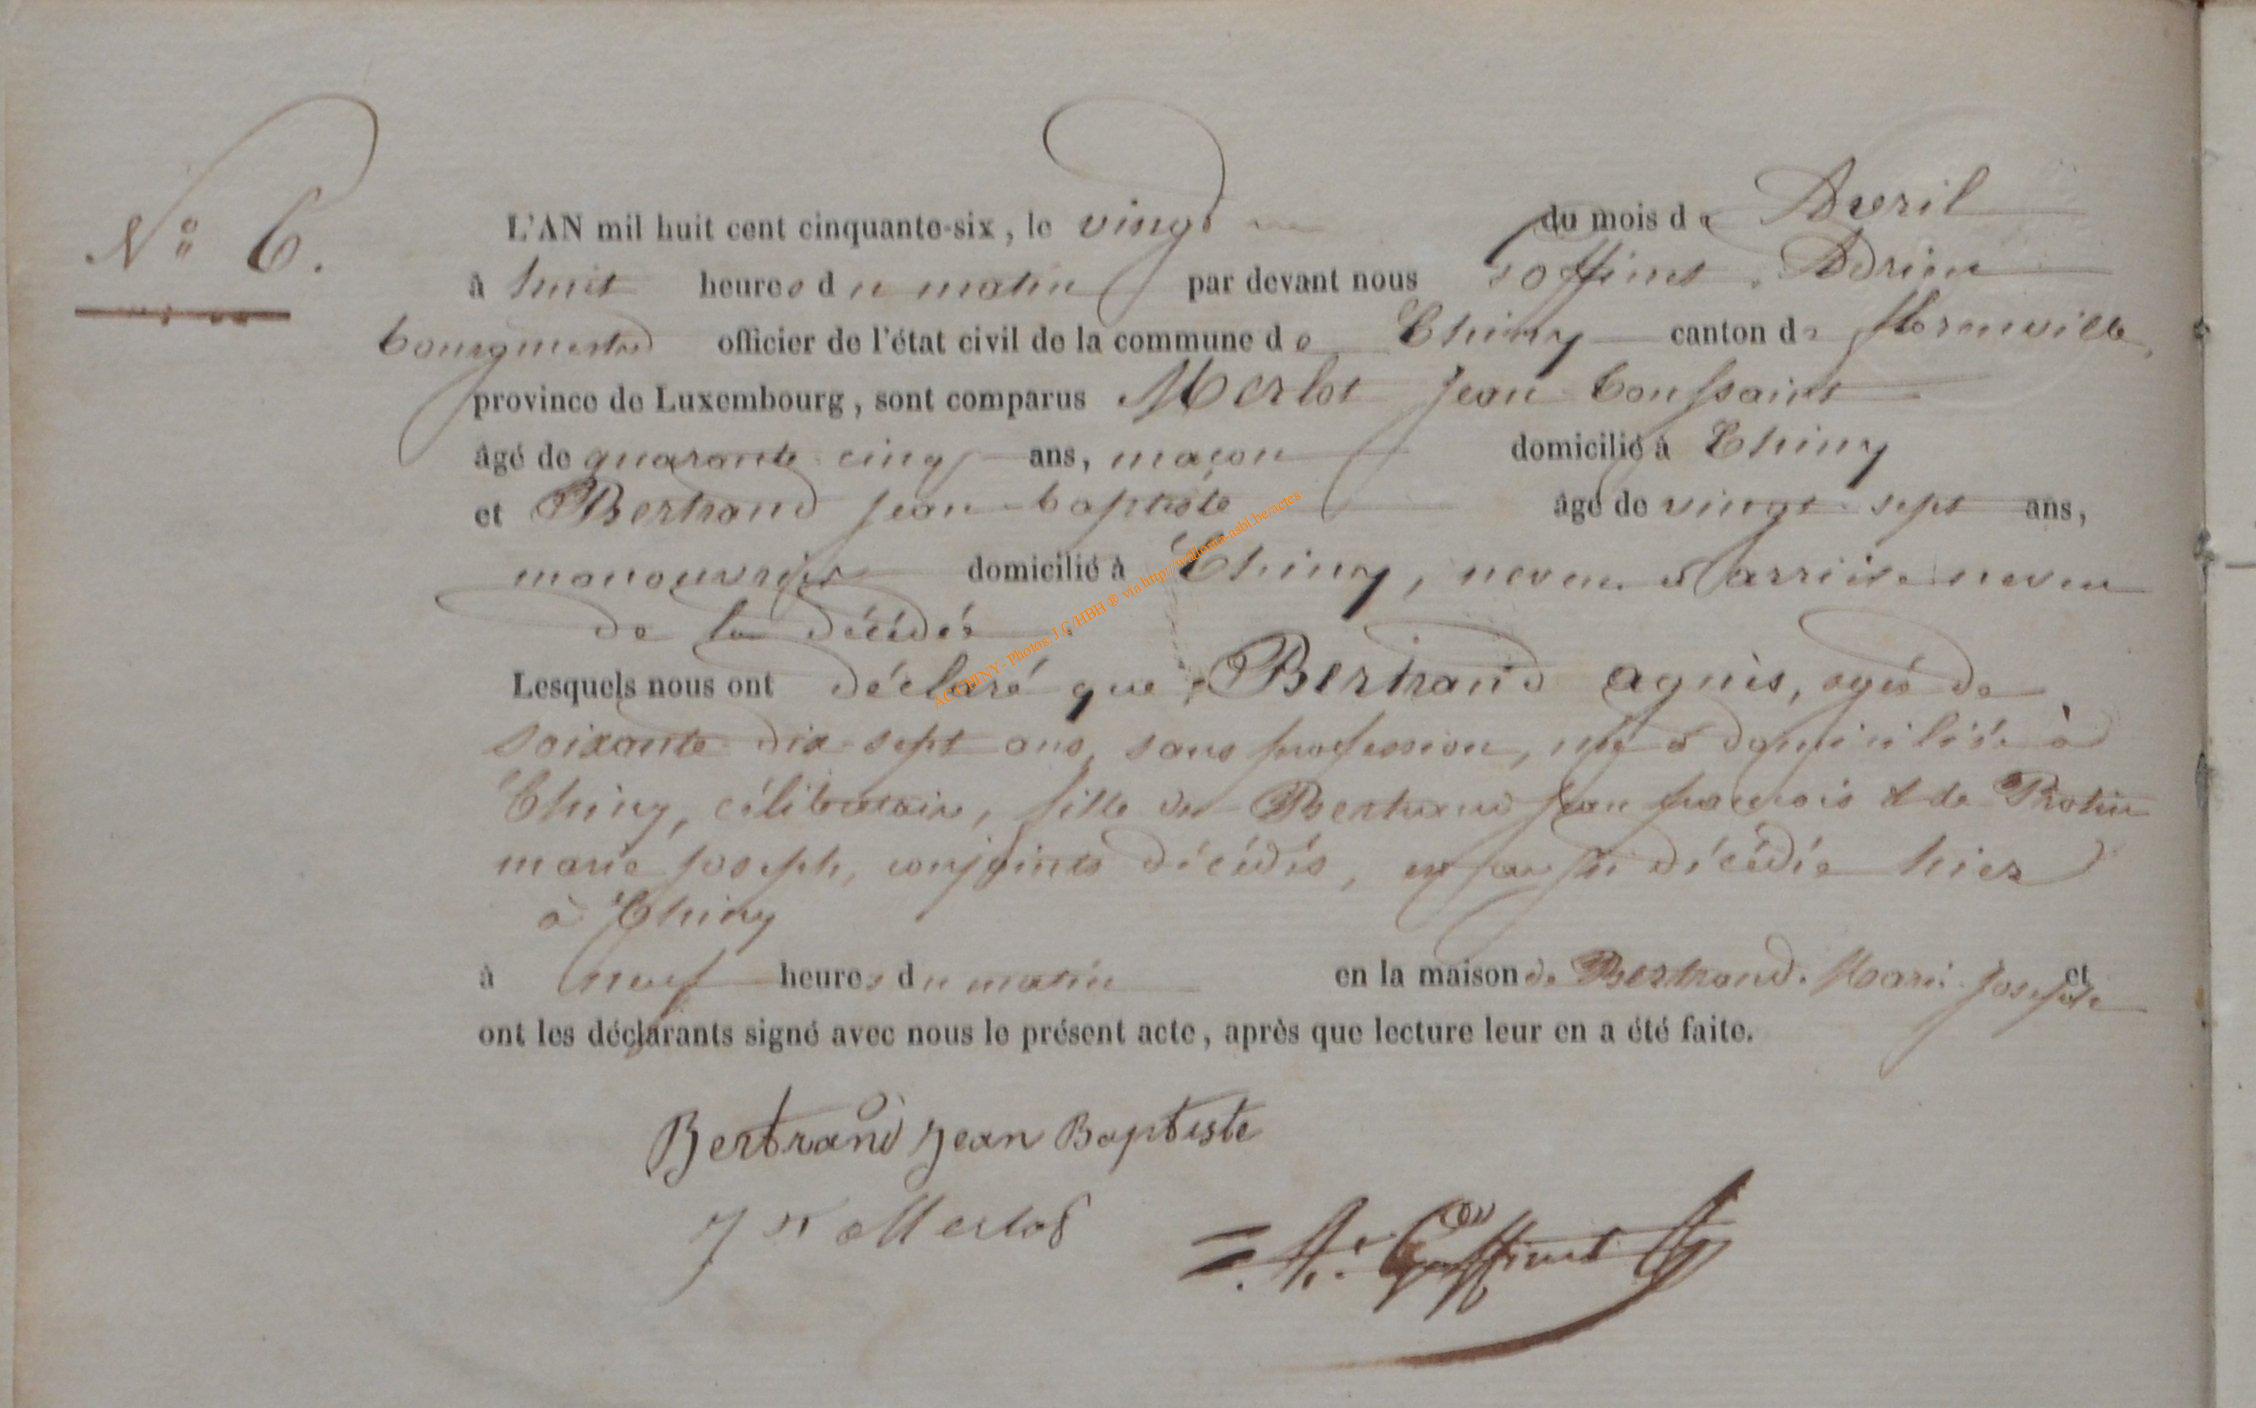 N° 6.
L'AN mil huit cent cinquante-six, le vingt du mois de Avril
à huit heures du matin par devant nous Goffinet Adrien
bourgmestre officier de l'état civil de la commune de Chiny canton de florenville,
province de Luxembourg, sont comparus Merlot jean toussaint
âgé de quarante cinq ans, maçon domicilié à Chiny
et Bertrand jean baptiste âgé de vingt sept ans,
manouvrier domicilié à Chiny, neveu et arrière neveu
de la décédée
Lesquels nous ont déclaré que Bertrand agnès, agée de
soixante dix sept ans, sans profession, née et domiciliée à
Chiny, célibataire, fille de Bertrand jean francois et de Protin
marie joseph, conjoints décédés, est décédée hier
à Chiny
à neuf heures du matin en la maison de Bertrand Marie Josephe et
ont les déclarants signé avec nous le présent acte, après que lecture leur en a été faite.
Bertrand jean Baptiste
J N Merlot
A. Goffinet
ACCHINY - Photos J.C/HBH ® via http://wallonia-asbl.be/actes